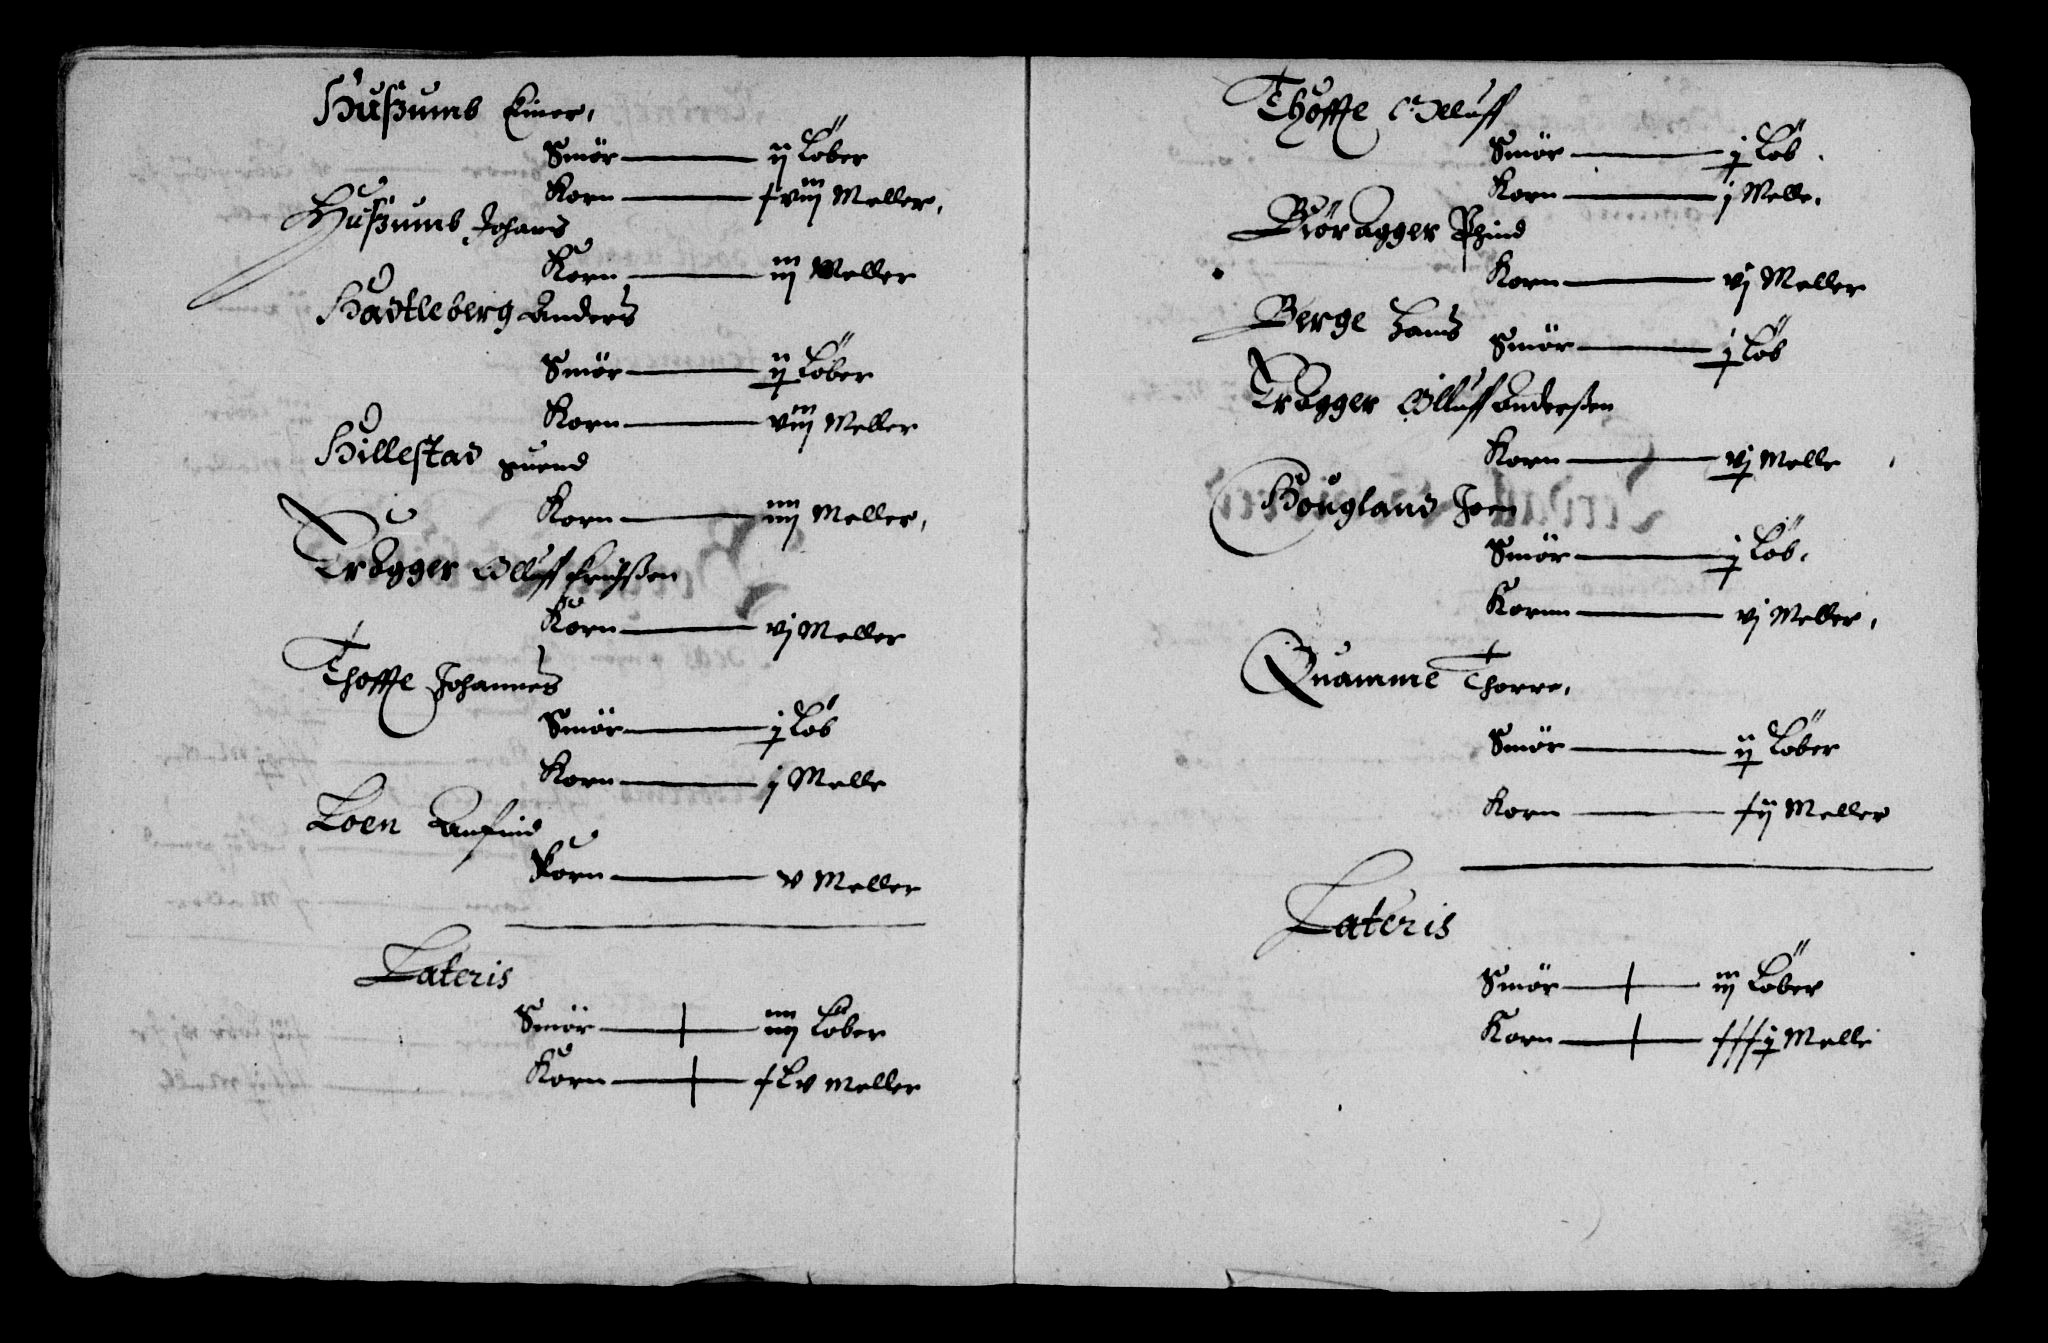 Hußumb Einer,
Smör — ij Löber
Korn — xviij Meller,
Hußumb Johans
Korn — iij Meller
Hadtleberg Anders
Smör — ij Löber
Korn — viij Meller
Hillestad Suend
Korn — iiij Meller,
Trögger Olluff Erichßen
Korn — vj Meller
Thoffte Johannes
Smör — j Löb
Korn — j Melle
Loen Anfind
Korn — v Meller
Lateris
Smör — iiij Löber
Korn — xLv Meller
Thoffte Olluff
Smör — j Löb
Korn — j Melle,
Biöragger Phind
Korn — vj Meller
Berge Hans
Smör — j Löb
Trögger Olluff Anderßen
Korn — vj Melle
Hougland Joen
Smör — j Löb,
Kornn — vj Meller,
Quamme Thorre,
Smör — ij Löber
Korn — xij Meller
Lateris
Smör — iij Löber
Korn — xxxj Melle